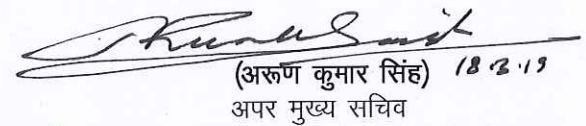 (अरूण कुमार सिंह) 18.3.19
अपर मुख्य सचिव